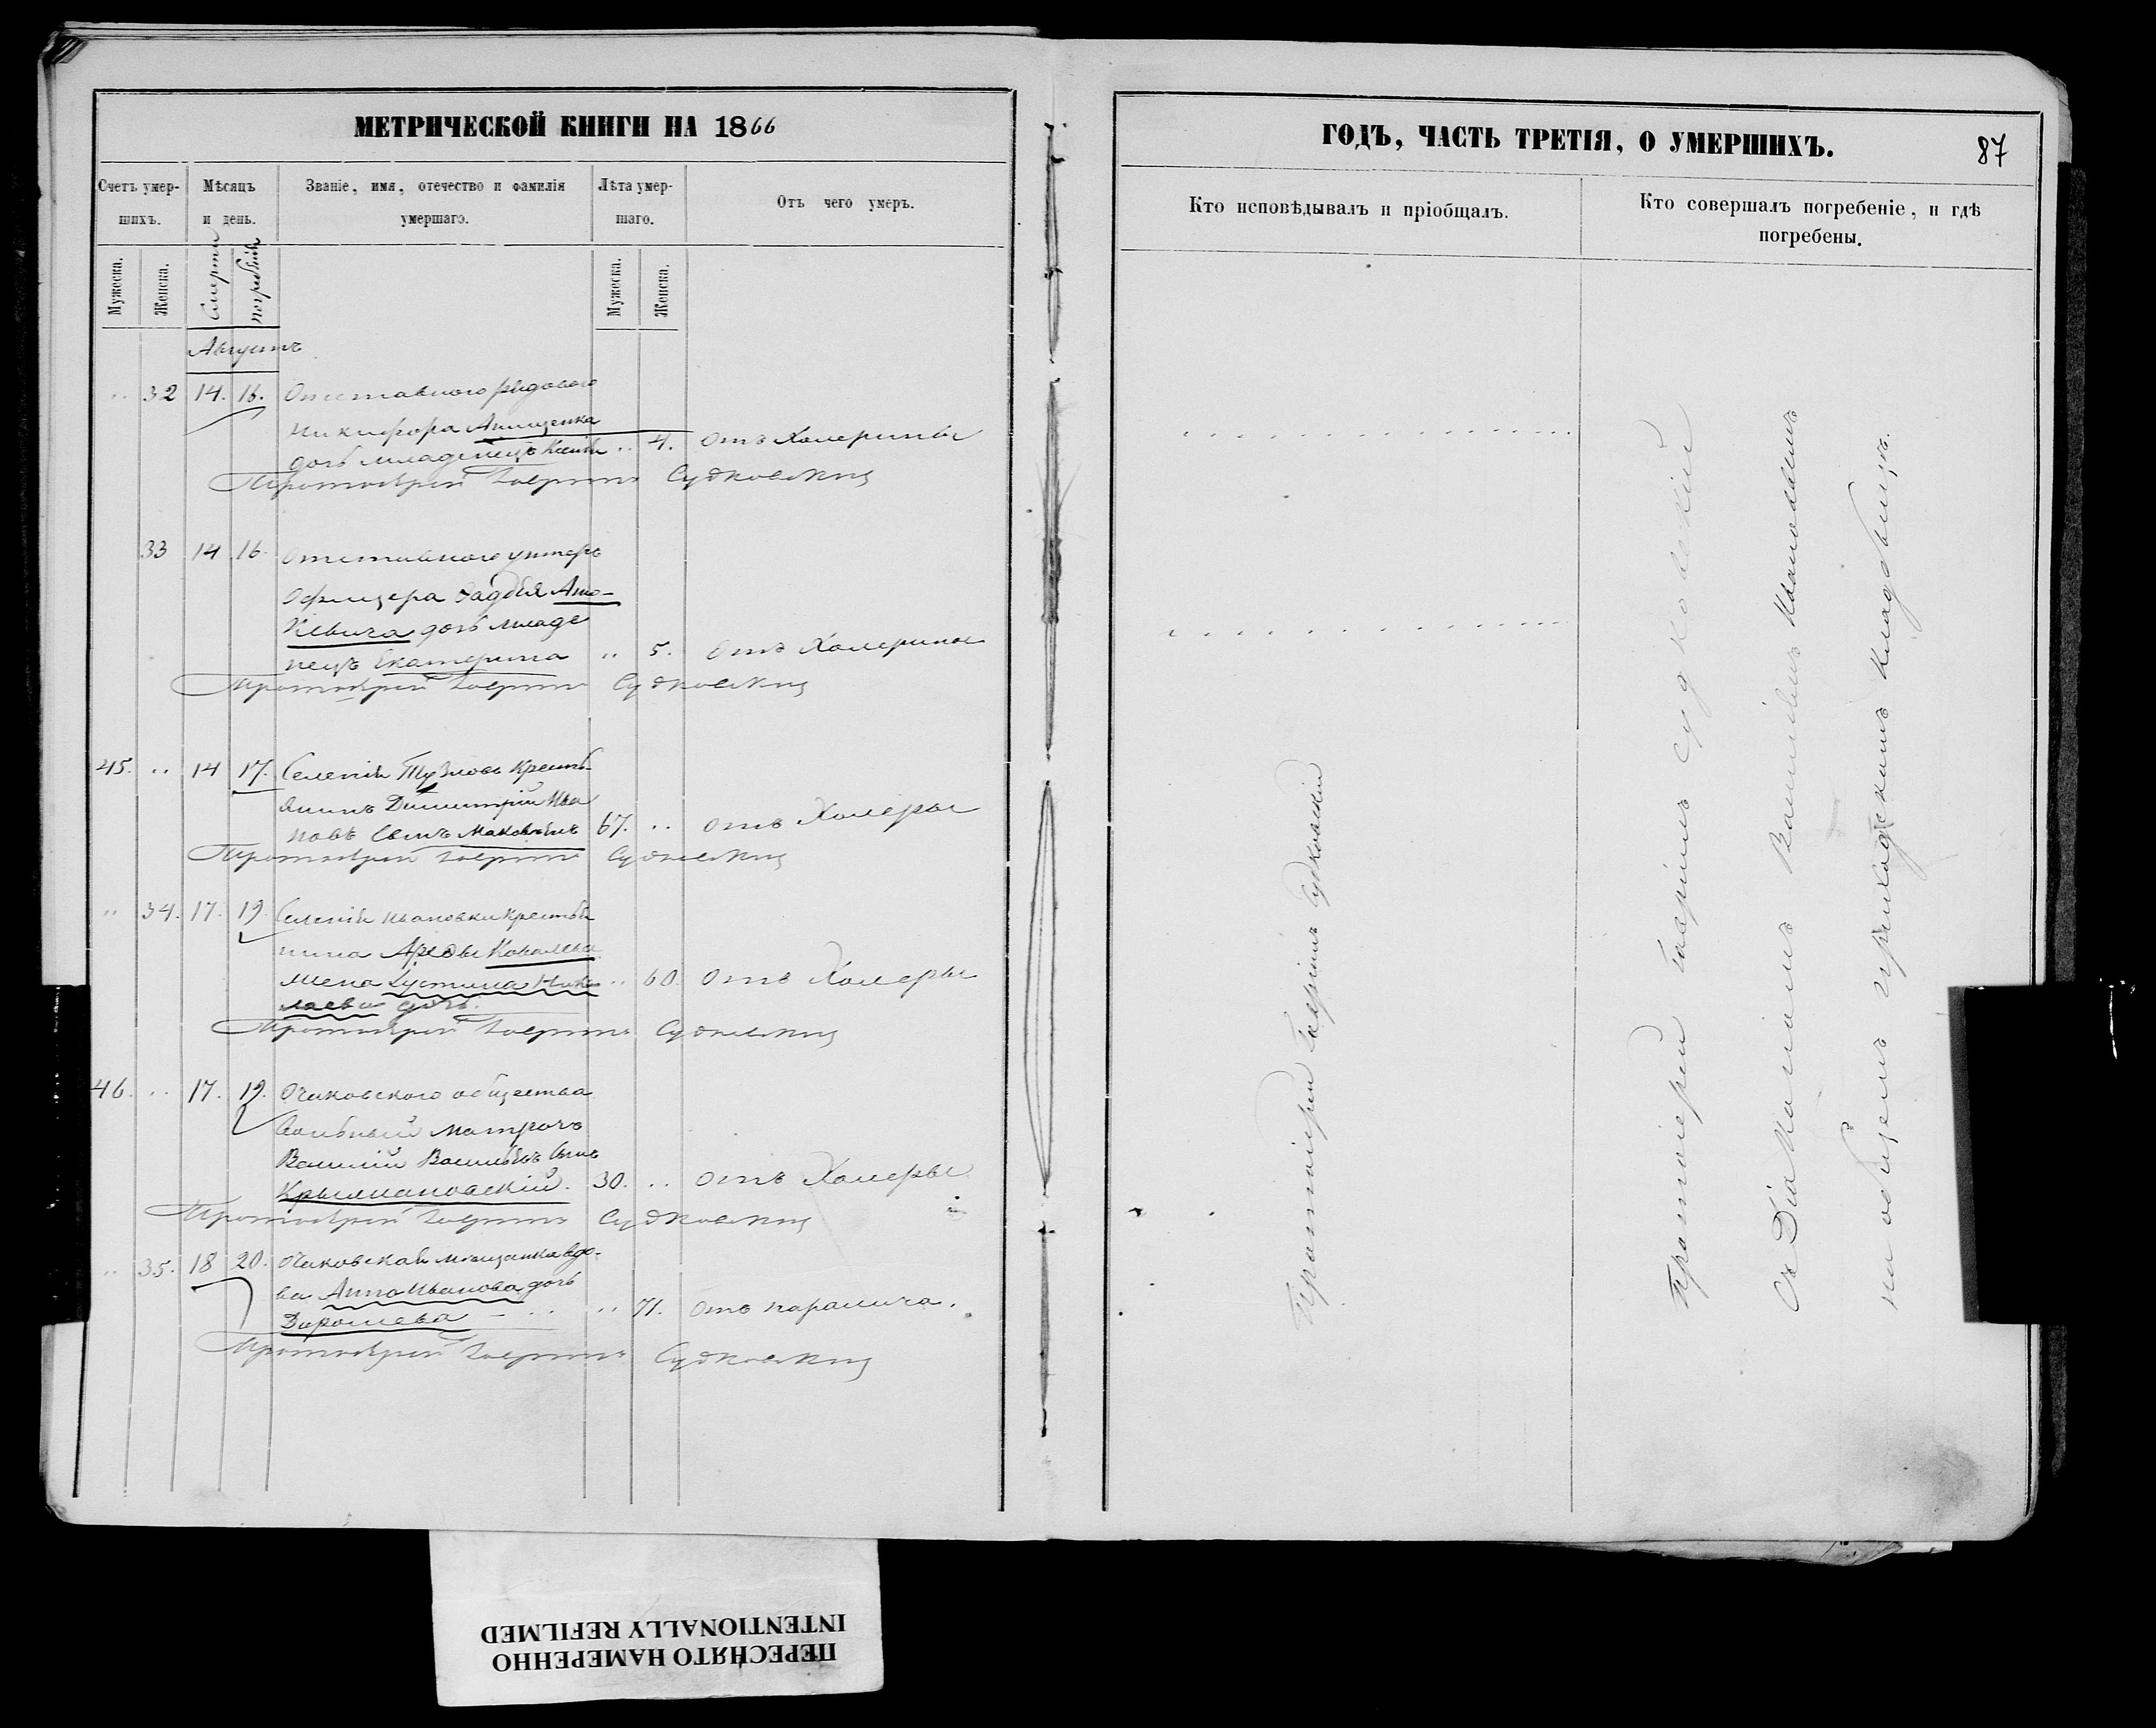 МЕТРИЧЕСКОЙ КНИГИ НА 1866
Счетъ умершихъ.
Мѣсяцъ и день.
Званіе, имя, отечество и фамилія умершаго.
Лѣта умершаго.
Отъ чего умеръ.
Мужеска.
Женска.
Смерти
погребенія
Мужеска.
Женска.
Августъ
32 14. 16. Отставного рядового
Никифора Анищенка
дочь младенецъ Ксенія 4. отъ Холерины
Протоіерей Гавріилъ Судковскій
33 14 16. Отставного унтеръ
Офицера Фаддея
дочь младе
нецъ Екатерина 5. отъ Холерины
Протоіерей Гавріилъ Судковскій
45. 14 17. Селенія Тузловъ Кресть
янинъ Димитрій Ива
новъ сынъ 67. отъ Холеры
Протоіерей Гавріилъ Судковскій
34. 17. 19. Селенія Ивановки Крестья
нина Ковалева
жена Іустина Нико
лаева дочь. 60. отъ Холеры
Протоіерей Гавріилъ Судковскій
46. 17. 19. Очаковского общества
вольный матрозъ
Василій Васильевъ сынъ
Крыжановскій. 30. отъ Холеры
Протоіерей Гавріилъ Судковскій
35. 18 20. Очаковская мѣщанка вдо-
ва Анна Иванова дочь
71. отъ паралича.
Протоіерей Гавріилъ Судковскій
ГОДЪ, ЧАСТЬ ТРЕТІЯ, О УМЕРШИХЪ.
87
Кто исповѣдывалъ и пріобщалъ.
Кто совершалъ погребеніе, и гдѣ
погребены.
Протоіерей Гавріилъ Судковскій
Протоіерей Гавріилъ Судковскій
съ Діакономъ Василіемъ
на общемъ приходскомъ кладбищѣ.
ПЕРЕСНЯТО НАМЕРЕННО
INTENTIONALLY REFILMED